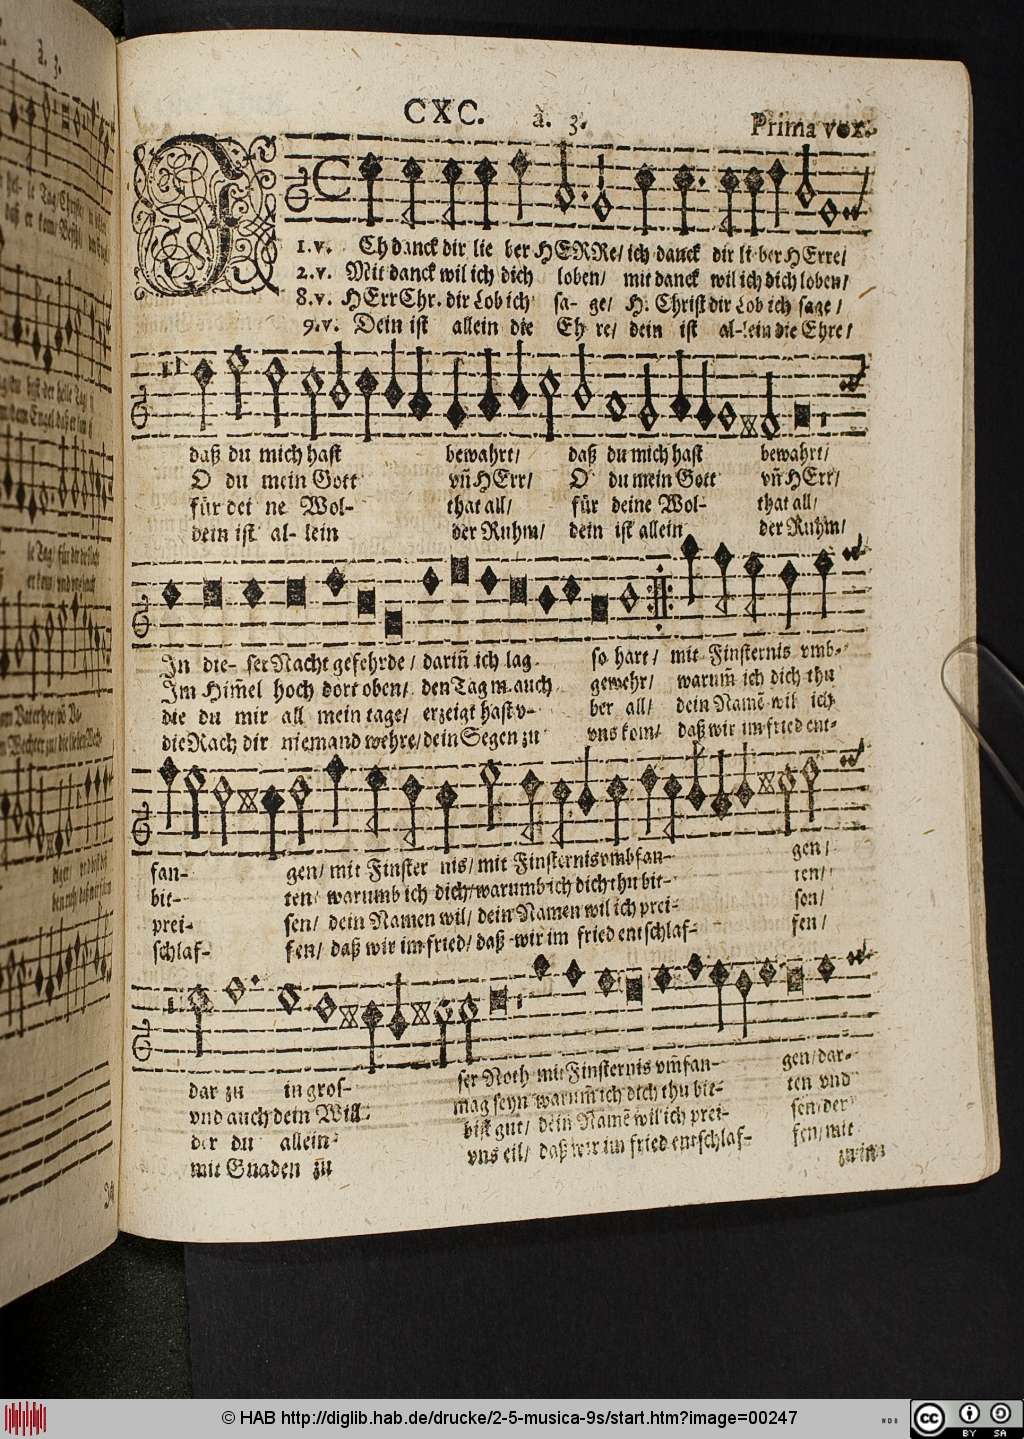 CXC. à. 3. Prima vox.
1.v. Ch danck dir lie ber HERRe/ ich danck dir li-ber HErre/
2.v. Mit danck wil ich dich loben/ mit danck wil ich dich loben/
8.v. HErr Chr. dir Lob ich sa- ge/ H. Christ dir Lob ich sage/
9.v. Dein ist allein die Eh re/ dein ist al-lein die Ehre/
daß du mich hast bewahrt/ daß du mich hast bewahrt/
O du mein Gott vñ HErr/ O du mein Gott vñ HErr/
für dei ne Wol- that all/ für deine Wol- that all/
dein ist al- lein der Ruhm/ dein ist allein der Ruhm/
In die- ser Nacht gefehrde/ dariñ ich lag so hart/ mit Finsternis vmb-
Im Him̃el hoch dort oben/ den Tag m. auch gewehr/ warum̃ ich dich thu
die du mir all mein tage/ erzeigt hast v- ber all/ dein Namẽ wil ich
die Nach dir niemand wehre/ dein Segen zu vns kom/ daß wir im fried ent-
fan- gen/ mit Finster nis/ mit Finsternis vmbfan- gen/
bit- ten/ warumb ich dich/ warumb ich dich thu bit- ten/
prei- sen/ dein Namen wil/ dein Namen wil ich prei- sen/
schlaf- fen/ daß wir im fried/ daß wir im fried entschlaf- fen/
dar zu in gros- ser Noth mit Finsternis vm̃fan- gen/ dar-
vnd auch dein Will mag seyn warum̃ ich dich thu bit- ten vnd
der du allein bist gut/ dein Namẽ wil ich prei- sen/ der
mit Gnaden zu vns eil/ daß wir im fried entschlaf- fen/ mit
zu in
© HAB http://diglib.hab.de/drucke/2-5-musica-9s/start.htm?image=00247
cc BY SA